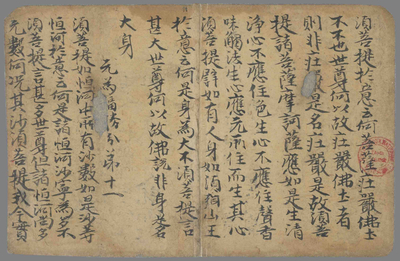 須菩提於意云何菩薩莊嚴佛土
不不也世尊何以故莊嚴佛土者
則非莊嚴是名莊嚴是故須菩
提諸菩薩摩訶薩應如是生清
淨心不應住色生心不應住聲香
味觸法生心應无所住而生其心
須菩提譬如有人身如須弥山王
於意云何是身為大不須菩提言
甚大世尊何以故佛說非身是名
大身
无為福勝分弟十一
須菩提如恒河中所有沙數如是沙等
恒河於意云何是諸恒河沙寧為多不
須菩提言甚多世尊但諸恒河尚多
无數何況其沙須菩提我今實